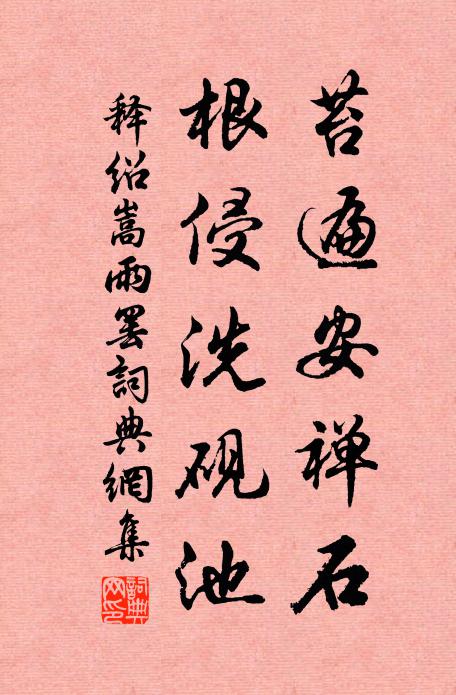 苔遍安禅石
根侵洗砚池
释绍嵩雨罢詞典網集
詞典网印